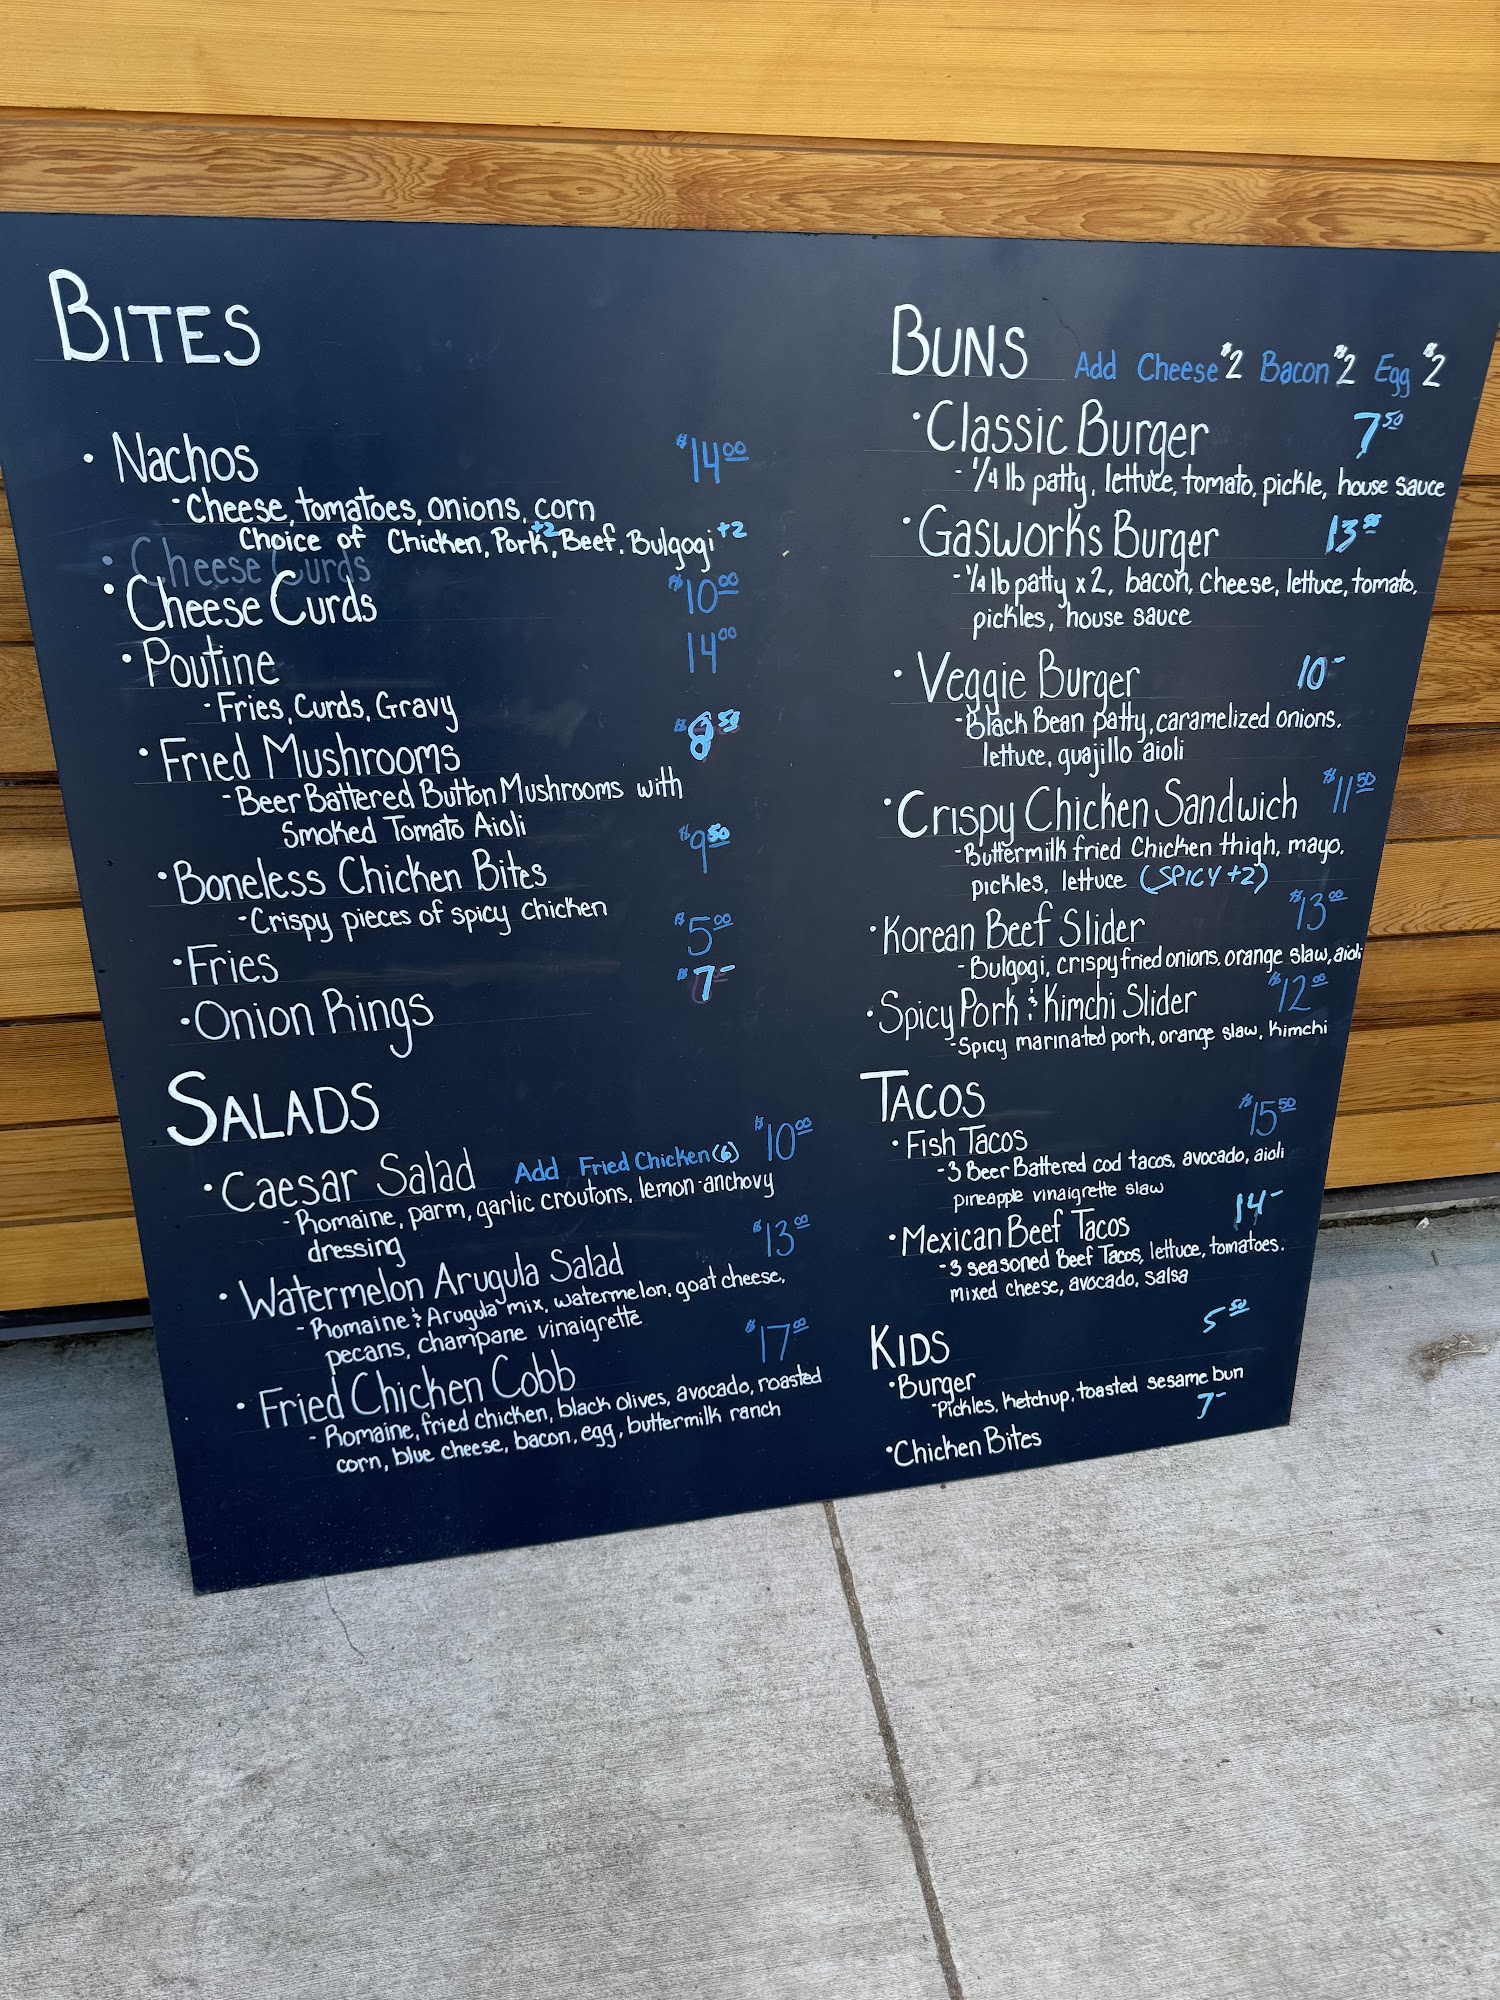 BITES
• Nachos $14.00
- Cheese, tomatoes, onions, corn
Choice of Chicken, Pork +2, Beef, Bulgogi +2
• Cheese Curds
• Cheese Curds $10.00
• Poutine 14.00
- Fries, Curds, Gravy
• Fried Mushrooms $8.50
- Beer Battered Button Mushrooms with
Smoked Tomato Aioli
• Boneless Chicken Bites $9.50
- Crispy pieces of spicy chicken
• Fries $5.00
• Onion Rings $7-
SALADS
• Caesar Salad Add Fried Chicken (6) $10.00
- Romaine, parm, garlic croutons, lemon-anchovy
dressing
• Watermelon Arugula Salad $13.00
- Romaine & Arugula mix, watermelon, goat cheese,
pecans, champane vinaigrette
• Fried Chicken Cobb $17.00
- Romaine, fried chicken, black olives, avocado, roasted
corn, blue cheese, bacon, egg, buttermilk ranch
BUNS Add Cheese $2 Bacon $2 Egg $2
• Classic Burger 7.50
- 1/4 lb patty, lettuce, tomato, pickle, house sauce
• Gasworks Burger 13
- 1/4 lb patty x 2, bacon, cheese, lettuce, tomato,
pickles, house sauce
• Veggie Burger 10-
- Black Bean patty, caramelized onions,
lettuce, guajillo aioli
• Crispy Chicken Sandwich $11.50
- Buttermilk fried Chicken thigh, mayo,
pickles, lettuce (SPICY +2)
• Korean Beef Slider $13.00
- Bulgogi, crispy fried onions, orange slaw, aioli
• Spicy Pork & Kimchi Slider $12.00
- Spicy marinated pork, orange slaw, kimchi
TACOS
• Fish Tacos $15.50
- 3 Beer Battered cod tacos, avocado, aioli
pineapple vinaigrette slaw
• Mexican Beef Tacos 14-
- 3 seasoned Beef Tacos, lettuce, tomatoes,
mixed cheese, avocado, salsa
KIDS
• Burger 5.50
- Pickles, ketchup, toasted sesame bun
• Chicken Bites 7-